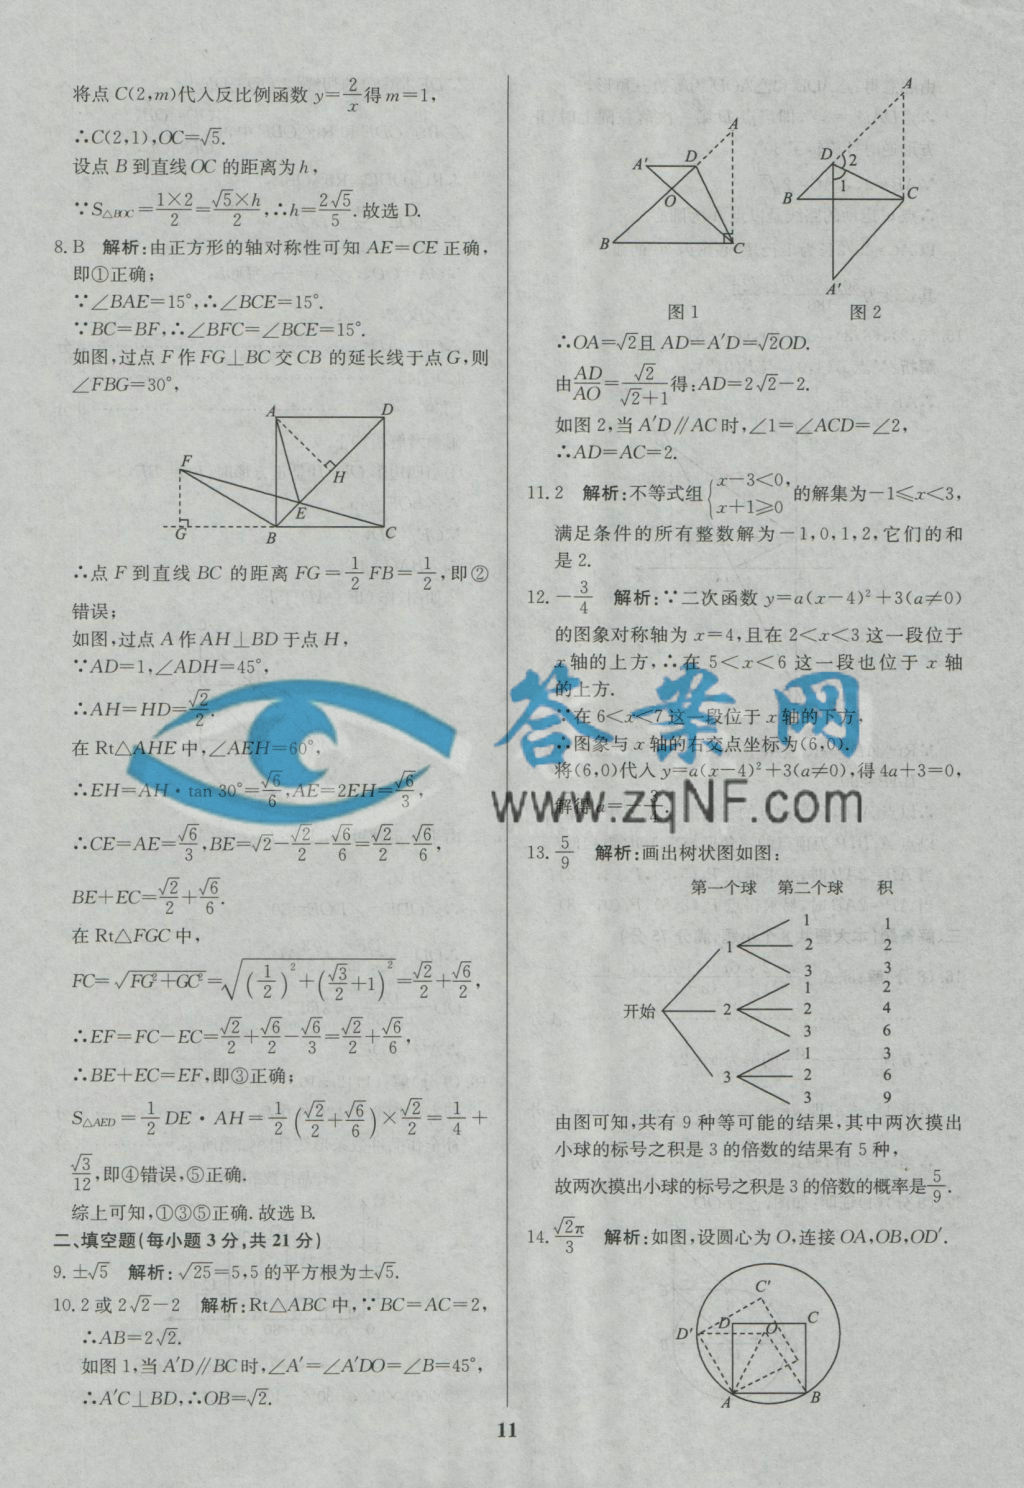 将点 C(2,m)代入反比例函数 y=2/x 得 m=1,
∴C(2,1),OC=√5.
设点 B 到直线 OC 的距离为 h,
∵S△BOC=1×2/2=√5×h/2,∴h=2√5/5.故选 D.
8. B 解析:由正方形的轴对称性可知 AE=CE 正确,
即①正确;
∵∠BAE=15°,∴∠BCE=15°.
∵BC=BF,∴∠BFC=∠BCE=15°.
如图,过点 F 作 FG⊥BC 交 CB 的延长线于点 G,则
∠FBG=30°,
A D
F H
E
G B C
∴点 F 到直线 BC 的距离 FG=1/2 FB=1/2,即②
错误;
如图,过点 A 作 AH⊥BD 于点 H,
∵AD=1,∠ADH=45°,
∴AH=HD=√2/2.
在 Rt△AHE 中,∠AEH=60°,
∴EH=AH·tan 30°=√6/6,AE=2EH=√6/3,
∴CE=AE=√6/3,BE=√2-√2/2-√6/6=√2/2-√6/6,
BE+EC=√2/2+√6/6.
在 Rt△FGC 中,
FC=√(FG²+GC²)=√((1/2)²+(√3/2+1)²)=√2/2+√6/2,
∴EF=FC-EC=√2/2+√6/2-√6/3=√2/2+√6/6,
∴BE+EC=EF,即③正确;
S△AED=1/2 DE·AH=1/2(√2/2+√6/6)×√2/2=1/4+
√3/12,即④错误,⑤正确.
综上可知,①③⑤正确.故选 B.
二、填空题(每小题 3 分,共 21 分)
9. ±√5 解析:√25=5,5 的平方根为±√5.
10. 2 或 2√2-2 解析:Rt△ABC 中,∵BC=AC=2,
∴AB=2√2.
如图 1,当 A′D∥BC 时,∠A′=∠A′DO=∠B=45°,
∴A′C⊥BD,∴OB=√2.
A
A′ D
O
B C
图 1
A
D 2
1
B C
A′
图 2
∴OA=√2且 AD=A′D=√2OD.
由AD/AO=√2/(√2+1)得:AD=2√2-2.
如图 2,当 A′D∥AC 时,∠1=∠ACD=∠2,
∴AD=AC=2.
11. 2 解析:不等式组{x-3<0, x+1≥0 的解集为-1≤x<3,
满足条件的所有整数解为-1,0,1,2,它们的和
是 2.
12. -3/4 解析:∵二次函数 y=a(x-4)²+3(a≠0)
的图象对称轴为 x=4,且在 2<x<3 这一段位于
x 轴的上方,∴在 5<x<6 这一段也位于 x 轴
的上方.
∵在 6<x<7 这一段位于 x 轴的下方,
∴图象与 x 轴的右交点坐标为(6,0).
将(6,0)代入 y=a(x-4)²+3(a≠0),得 4a+3=0,
解得 a=-3/4.
答案网
www.zqNF.com
13. 5/9 解析:画出树状图如图:
第一个球 第二个球 积
1 1
1 2 2
3 3
1 2
开始 2 2 4
3 6
1 3
3 2 6
3 9
由图可知,共有 9 种等可能的结果,其中两次摸出
小球的标号之积是 3 的倍数的结果有 5 种,
故两次摸出小球的标号之积是 3 的倍数的概率是5/9.
14. √2π/3 解析:如图,设圆心为 O,连接 OA,OB,OD′.
C′
D C
D′ O
A B
11